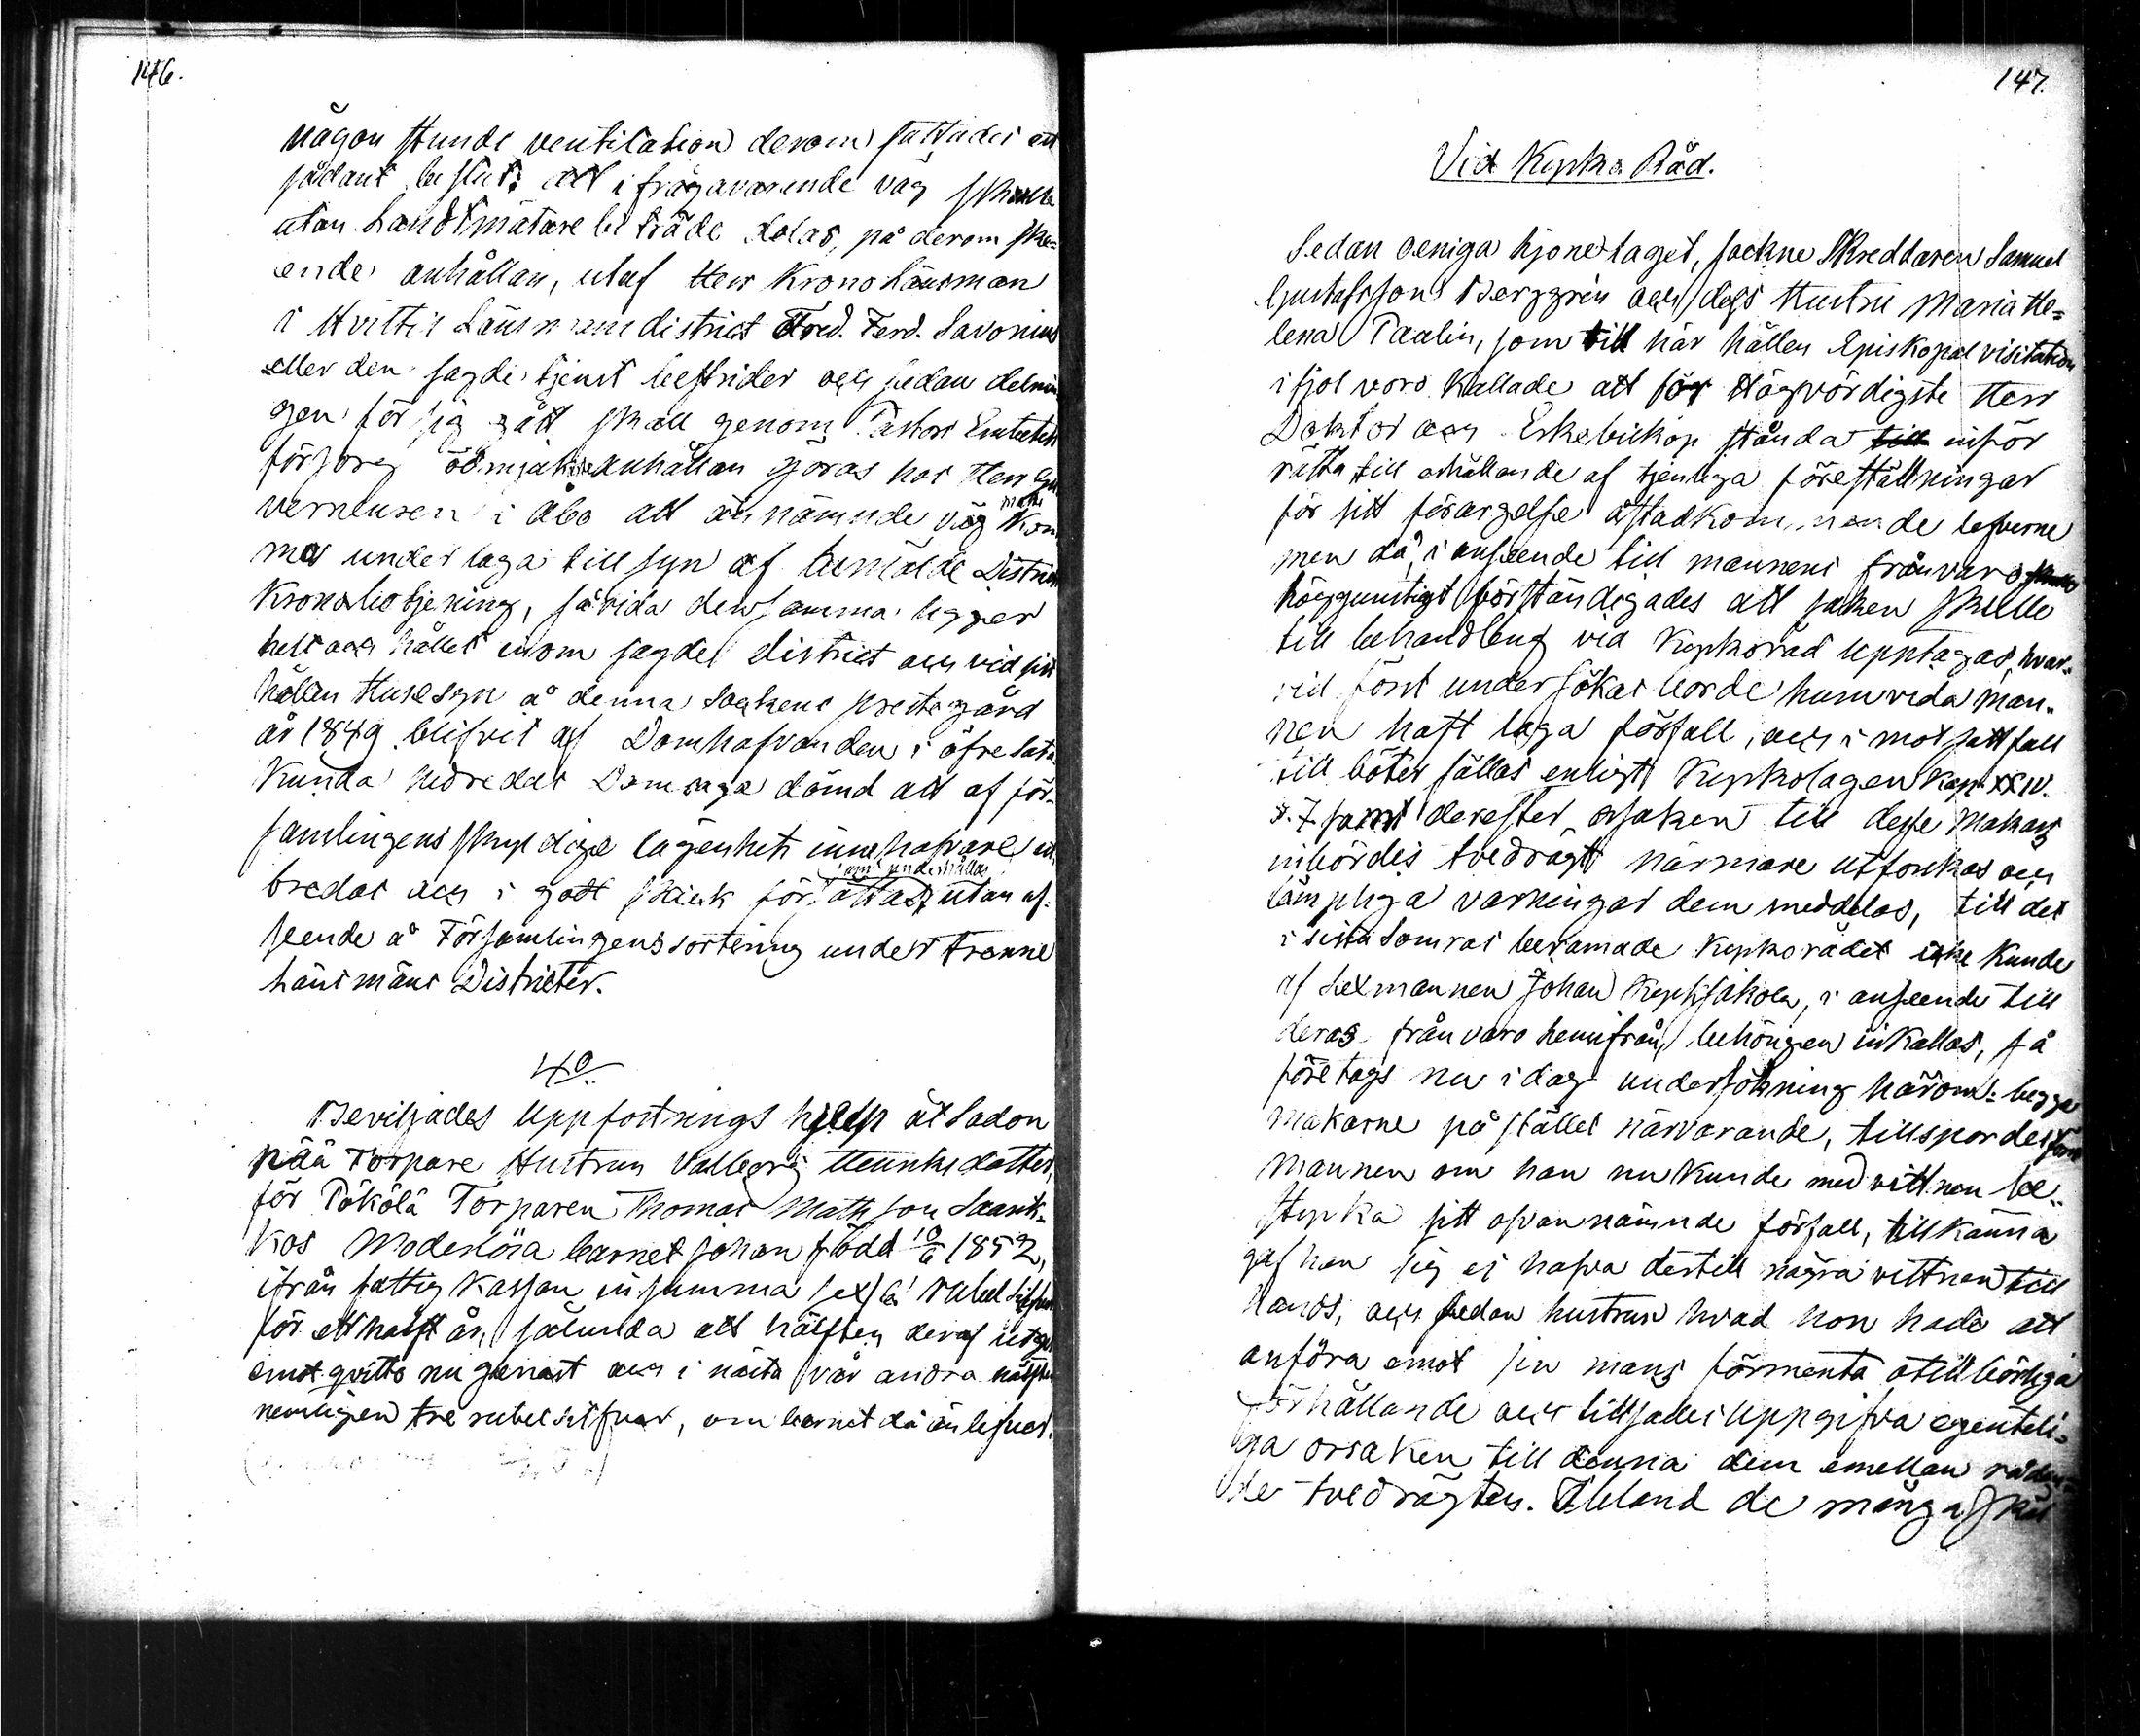 146.
någon stunds ventilation derom fattades ett
sådant beslut: att ifrågavarande väg skulle
utan Landtmätare biträde delas, på derom ske-
ende anhållan, utaf Herr Kronolänsman
i Hvittis Länsmansdistrict Ferd. Savonius
eller den sagde tjenst bestrider och sedan delnin
gen för sig gått skall genom Pastors Embetets
försorg ödmjuk anhållan göras hos Herr Gu
verneuren i Åbo att ännämnde väg måtte kom
ma under laga tillsyn af bemälde Districts
Kronobetjening, såvida densamma ligger
helt och hållet inom sagde district och vid sist
hållen Husesyn å denna Sockens prestegård
år 1849 blifvit af Domhafvanden i öfre Sata
kunda nedredels Domsaga dömd att af för-
samlingens skyldige lägenhets innehafvare ut
bredas och i godt skick försättas samt underhållas utan af-
seende å Församlingens sortering under trenne
Länsmäns Districter.
4o
Beviljades Uppfostrings hjelp åt Sadon
pää Torpare Hustrun Valborg Henriksdotter,
för Pökölä Torparen Thomas Mathsson Saarik-
kos Moderlösa barnet Johan född 10/6 1852,
ifrån fattig Kassan in summa sex/6/ rubel Silfver
för ett halft år, sålunda att hälften deraf utges
emot qvitto nu genast och i nästa vår andra hälften
nemligen tre rubel silfver, om barnet då än lefver.
147.
Vid Kyrko Råd.
Sedan oeniga hjonelaget, sockne Skreddaren Samuel
Gustafsson Berggrén och dess Hustru Maria He-
lena Paalin, som till här hållen Episkopal visitation
ifjol voro kallade att för Högvördigste Herr
Doktor och Erkebiskop stånda till inför
rätta till erhållande af tjenliga föreställningar
för sitt förargelse åstadkommande lefverne
men då, i anseende till mannens frånvaro
höggunstigt förständigades att saken skulle
till behandling vid Kyrkoråd upptagas, hvar-
vid först undersökas borde huruvida man-
nen haft laga förfall, och i motsatt fall
till böter fällas enligt Kyrkolagen Kap. XXIV.
§. 7 samt derefter orsaken till desse Makars
inbördes tvedrägt närmare utforskas och
lämpliga varningar dem meddelas, till det
i sista Somras beramade Kyrkorådet icke kunde
af Sexmannen Johan Kyrkjakola, i anseende till
deras frånvaro hemifrån, behörigen inkallas, så
företogs nu i dag undersökning härom: begge
makarne på stället närvarande, tillspordes först
Mannen om han nu kunde med vittnen be-
styrka sitt ofvannämnde förfall, tillkänna
gaf han sig ej hafva dertill några vittnen till
hands, och sedan hustrun hvad hon hade att
anföra emot sin mans förmenta otillbörliga
förhållande och tillsades uppgifva egenteli-
ga orsaken till denna dem emellan rådan
de tvedrägten. Ibland de många skäl